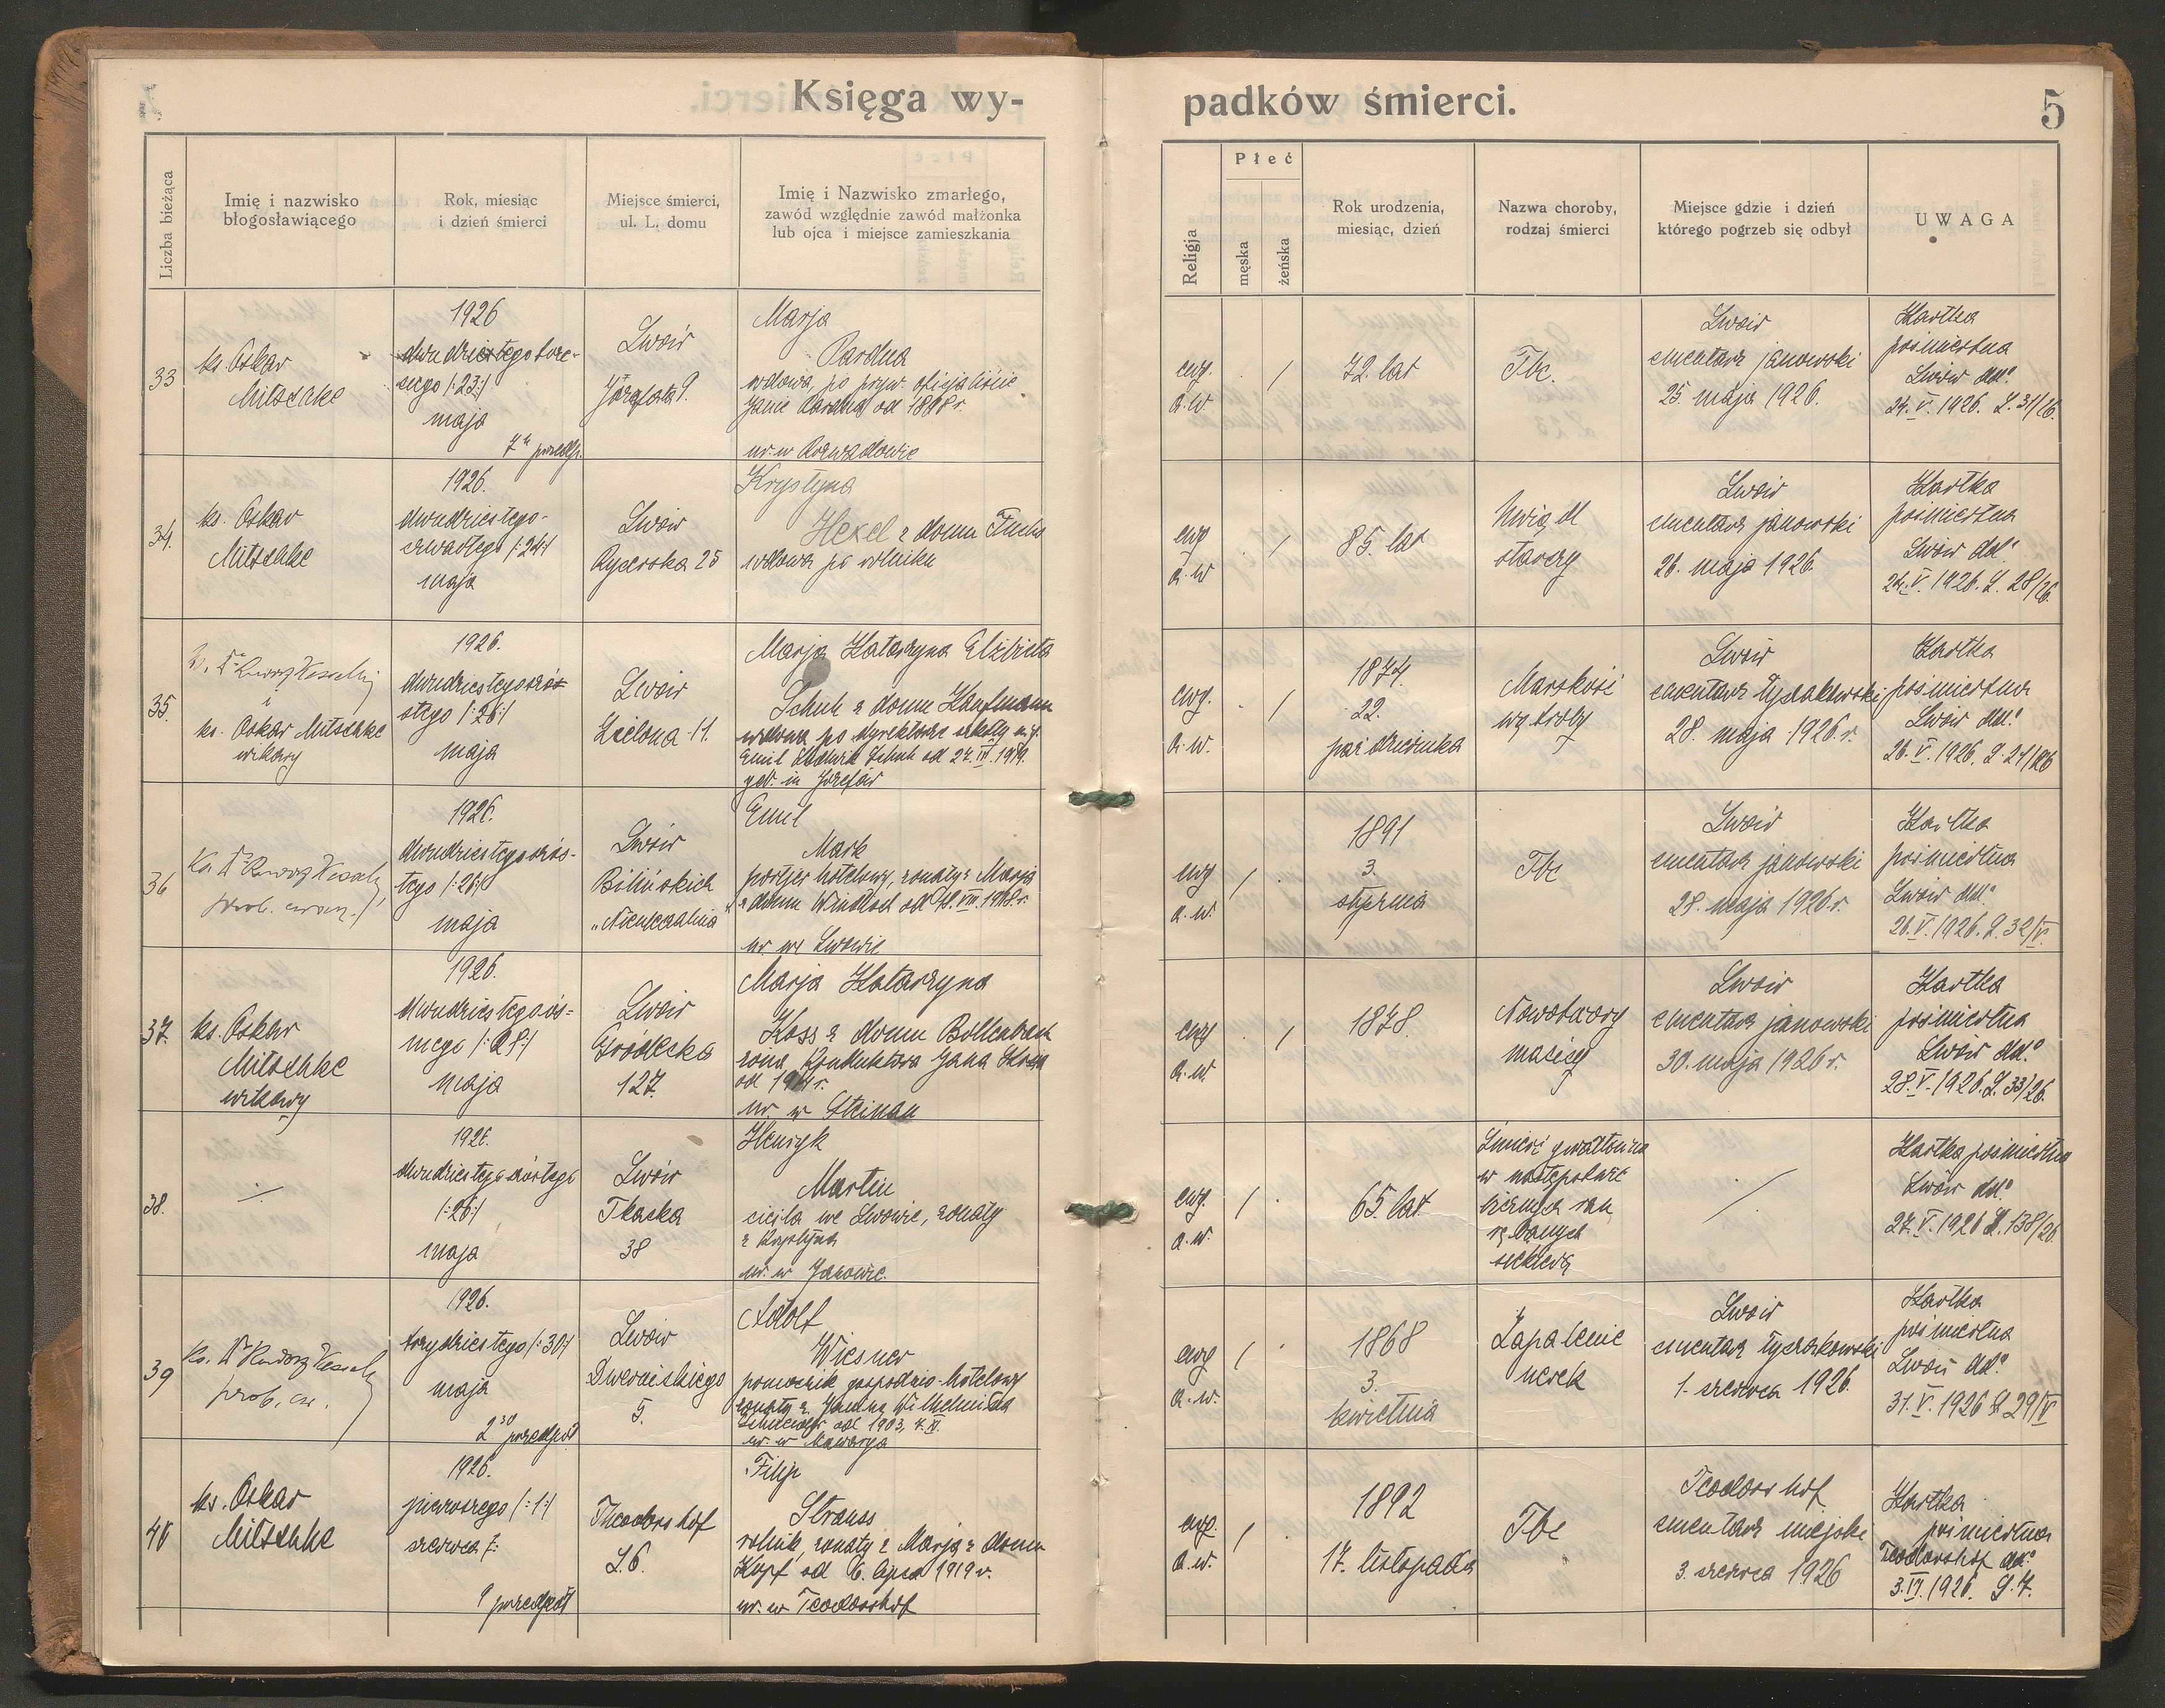 Księga wy-
padków śmierci.
5
Liczba bieżąca
Imię i nazwisko
błogosławiącego
Rok, miesiąc
i dzień śmierci
Miejsce śmierci,
ul. L. domu
Imię i Nazwisko zmarłego,
zawód względnie zawód małżonka
lub ojca i miejsce zamieszkania
Religja
Płeć
męska
żeńska
Rok urodzenia,
miesiąc, dzień
Nazwa choroby,
rodzaj śmierci
Miejsce gdzie i dzień
którego pogrzeb się odbył
UWAGA
33
ks. Oskar
Mitschke
1926
dwudziestego trze-
ciego /:23:/
maja
7 przedp.
Lwów
Józefata 9.
Marja
Pardua
wdowa, po pryw. oficjaliście
Janie od 1898 r.
ur. w Rozwadowie
ewg.
a. w.
/
72. lat
Tbc.
Lwów
cmentarz janowski
25. maja 1926.
Kartka
pośmiertna
Lwów dd.
24. V. 1926. L. 31/26.
34.
ks. Oskar
Mitschke
1926.
dwudziestego-
czwartego /:24:/
maja
Lwów
Rycerska 25
Krystyna
Hexel z domu Fuchs
wdowa po rolniku
ewg
a. w
/
85. lat
Uwiąd
starczy
Lwów
cmentarz janowski
26. maja 1926.
Kartka
pośmiertna
Lwów dd.
24. V. 1926. L. 28/26.
35.
i
ks. Oskar Mitschke
wikary
1926.
dwudziestego szó-
stego /:26:/
maja
Lwów
Zielona 11.
Marja Katarzyna Elżbieta
Schuh z domu Kaufmann
wdowa po dyrektorze szkoły
Emil Ludwik Schuh od
ur. in Józefów
ewg.
a. w.
/
1874.
22.
października
Marskość
wątroby
Lwów
cmentarz łyczakowski
28. maja 1926. r.
Kartka
pośmiertna
Lwów dd.
26. V. 1926. L. 24/26
36
ks. Dr
prob.
1926.
dwudziestego szós-
tego /:26:/
maja
Lwów
Bilińskich
"Nieuleczalnia"
Emil
Mark
portjer hotelowy, żonaty z Marją
z domu od
ur. we Lwowie
ewg
a. w.
/
1891
3.
stycznia
Tbc
Lwów
cmentarz janowski
28. maja 1926. r.
Kartka
pośmiertna
Lwów dd.
26. V. 1926. L. 32/V.
37.
ks. Oskar
Mitschke
wikary
1926.
dwudziestego ós-
mego /:28:/
maja
Lwów
Gródecka
127.
Marja Katarzyna
Koss z domu Bollenbach
żona konduktora Jana Kossa
od 1914 r.
ur. w Steinau
ewg
a. w.
/
1878.
Nowotwory
macicy
Lwów
cmentarz janowski
30. maja 1926 r.
Kartka
pośmiertna
Lwów dd.
28. V. 1926. L. 33/26.
38.
1926.
dwudziestego szóstego
/:26:/
maja
Lwów
Tkacka
38
Henryk
Martin
cieśla we Lwowie, żonaty
z Krystyną
ur. w Janowie.
ewg.
a. w.
/
65. lat
Śmierć gwałtowna
w następstwie
licznych ran
rąbanych
siekierą
/
Kartka pośmiertna
Lwów dd.
27. V. 1926 L. 138/26.
39
ks. Dr
prob.
1926.
trzydziestego /:30:/
maja
2 30 przedpoł
Lwów
Dwernickiego
5.
Adolf
Wiesner
pomocnik gospodnio-hotelowy
żonaty z Wilhelmina
od 1903,
ur. w
ewg
a. w.
/
1868
3.
kwietnia
Zapalenie
nerek
Lwów
cmentarz łyczakowski
1. czerwca 1926.
Kartka
pośmiertna
Lwów dd.
31. V. 1926 L. 29/V
40
ks. Oskar
Mitschke
1926.
pierwszego /:1:/
czerwca
9 przedpoł
Theodorshof
L. 6.
Filip
Strauss
rolnik, żonaty z Marją z domu
Kopf od 1919 r.
ur. w Teodorshof
ewg.
a. w.
/
1892
17. listopada
Tbc
Teodorshof
cmentarz miejski
3. czerwca 1926
Kartka
pośmiertna
Teodorshof dd.
3. VI. 1926. L. 7.